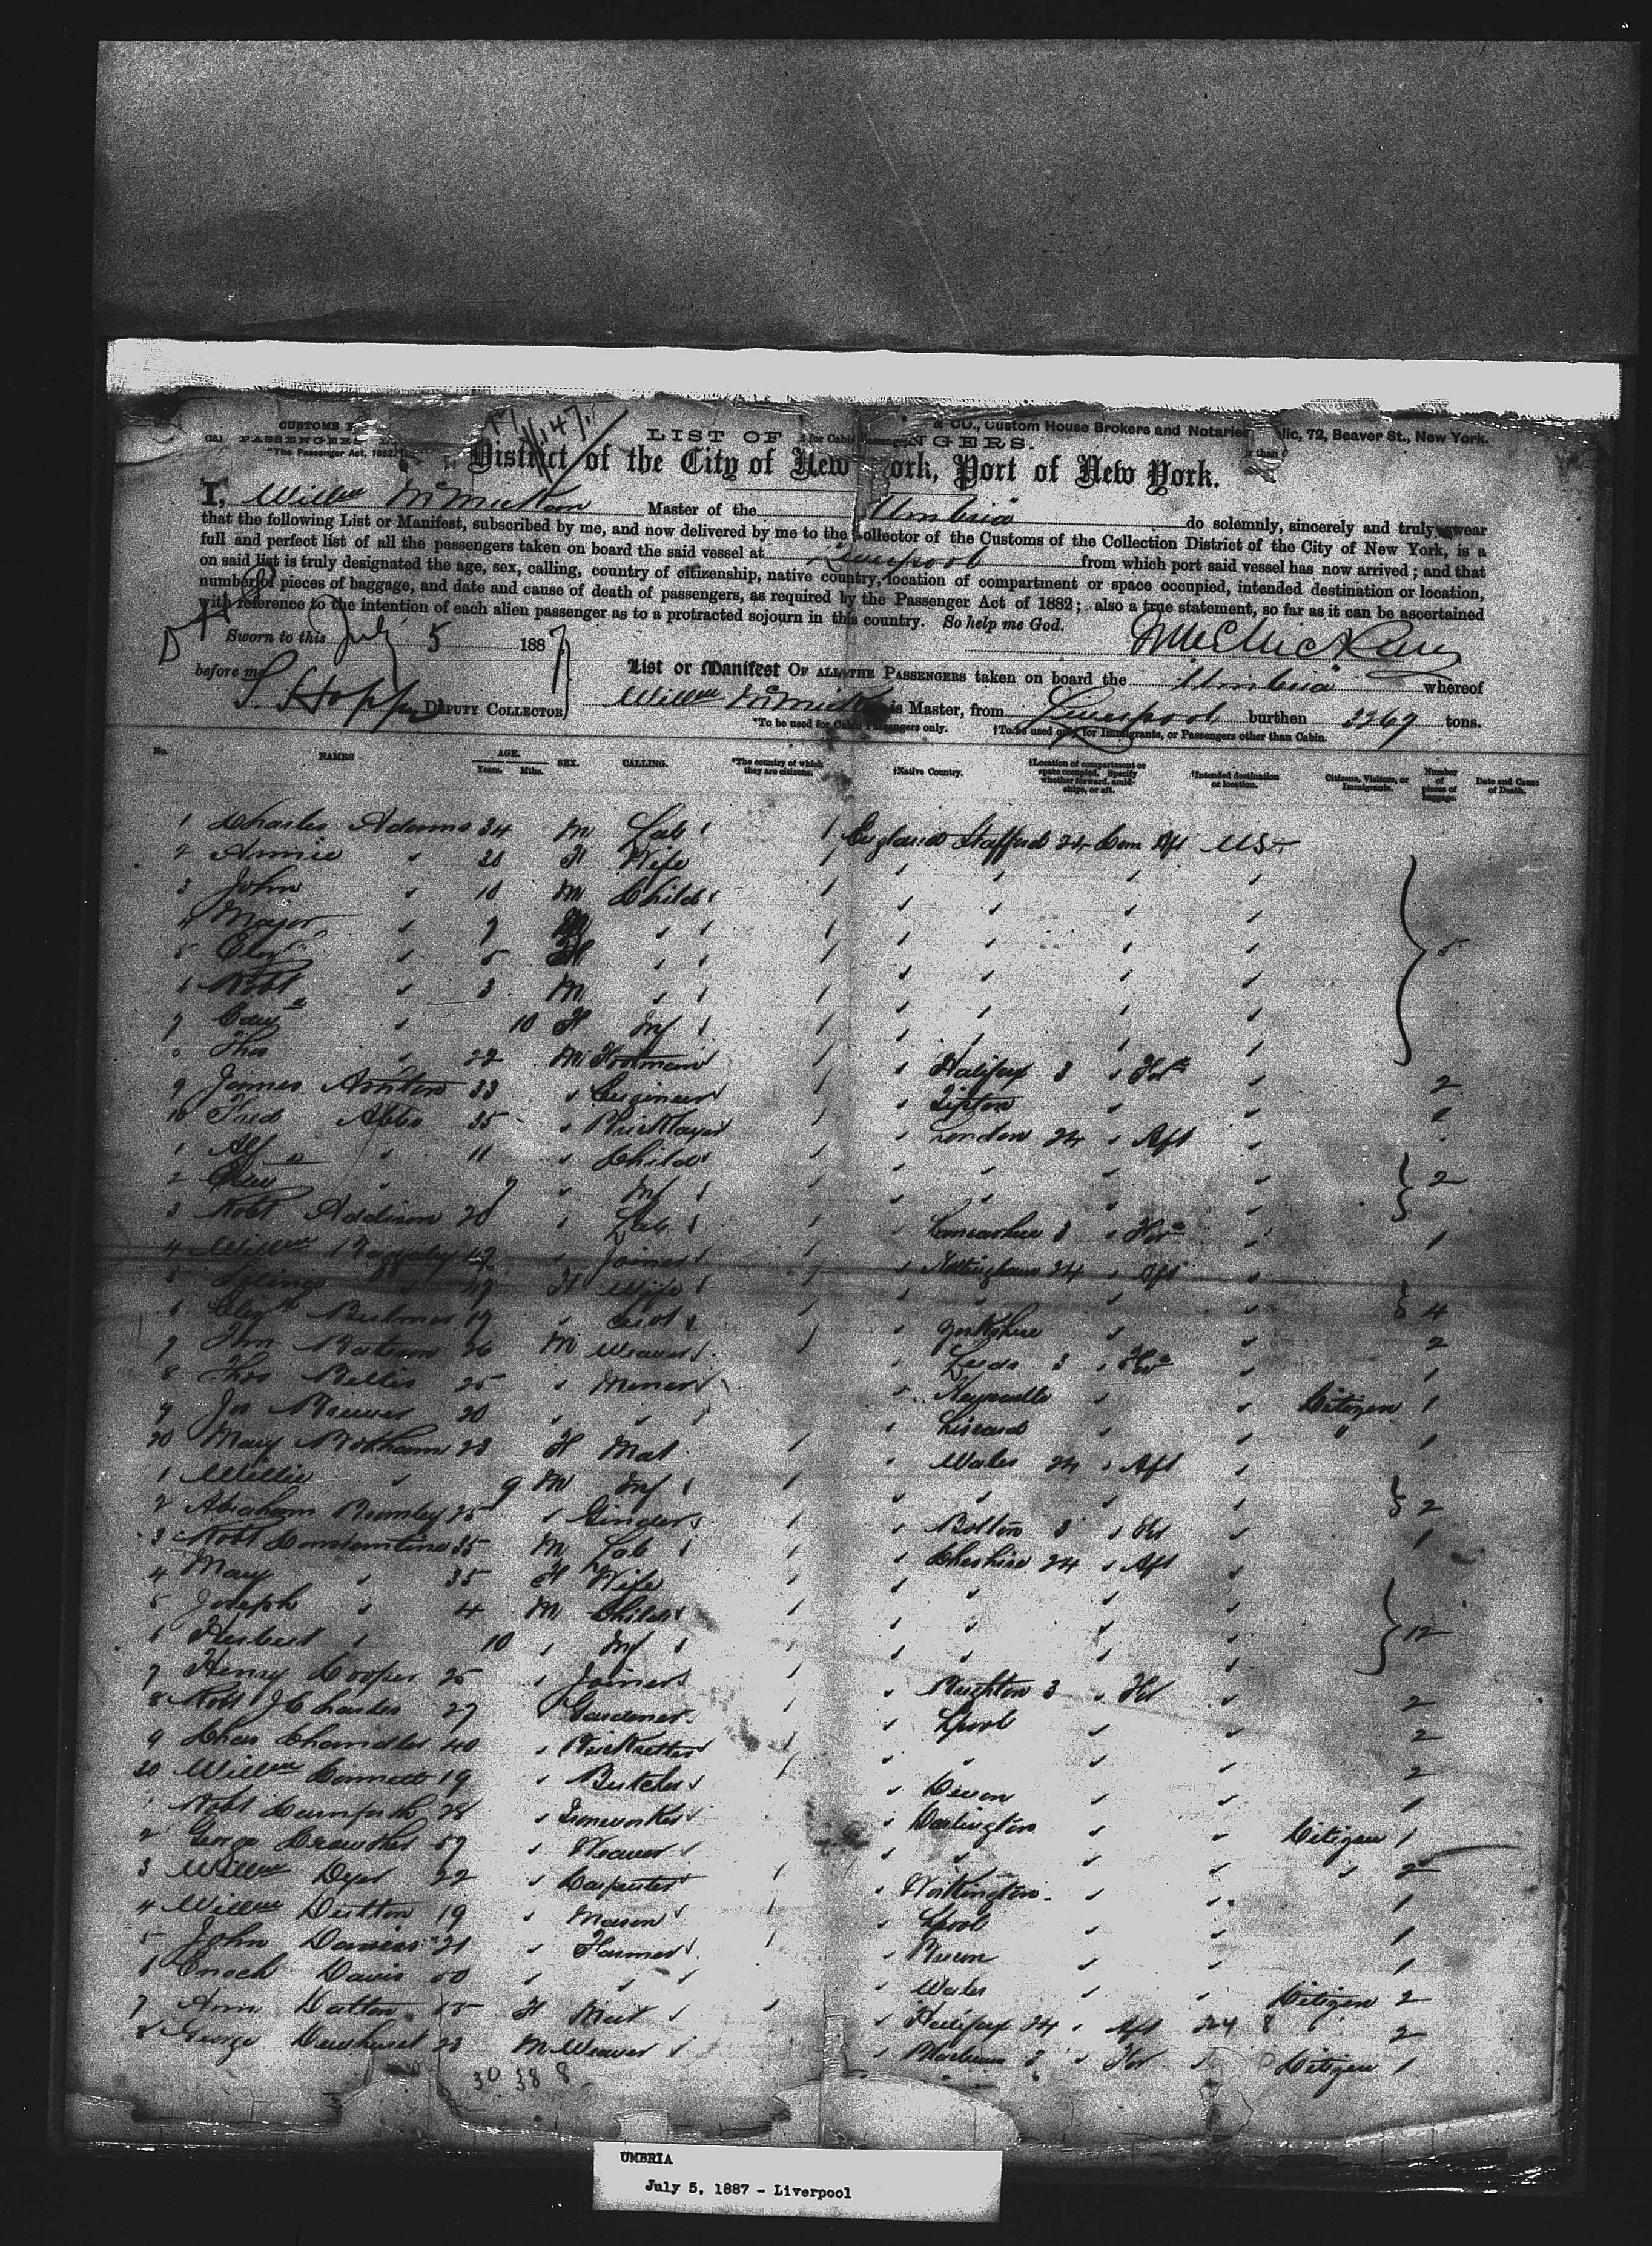 CUSTOMS
& CO., Custom House Brokers and Notaries
lic, 72, Beaver St., New York.
PASSENGERS
LIST OF
NGERS.
"The Passenger Act, 1882."
District of the City of New ork, Port of New York.
I, Willm McMickan Master of the Umbria do solemnly, sincerely and truly swear
that the following List or Manifest, subscribed by me, and now delivered by me to the Collector of the Customs of the Collection District of the City of New York, is a
full and perfect list of all the passengers taken on board the said vessel at Liverpool from which port said vessel has now arrived; and that
on said list is truly designated the age, sex, calling, country of citizenship, native country, location of compartment or space occupied, intended destination or location,
number of pieces of baggage, and date and cause of death of passengers, as required by the Passenger Act of 1882; also a true statement, so far as it can be ascertained
with reference to the intention of each alien passenger as to a protracted sojourn in this country. So help me God.
Sworn to this July 5 1887
WMcMickan
before me
List or Manifest OF ALL THE PASSENGERS taken on board the Umbria whereof
S. Hopper DEPUTY COLLECTOR
Willm McMick is Master, from Liverpool burthen 3269 tons.
*To be used for Cabin Passengers only. †To be used only for Immigrants, or Passengers other than Cabin.
No. NAMES AGE. Years. Mths. SEX. CALLING. *The country of which they are citizens. †Native Country. †Location of compartment or space occupied. Specify whether forward, amidships, or aft. †Intended destination or location. Citizens, Visitors, or Immigrants. Number of pieces of baggage. Date and Cause of Death.
1 Charles Adams 34 M Lab England Stafford 24 Com Aft US
2 Annie 30 F Wife
3 John 10 M Child
4 9
5 Eliz 5 F
6 Robt 3 M 5
7 10 F Inf
8 Thos 22 M Footman Halifax 3 For 2
9 James Ashton 33 Engineer Tipton 1
10 Fred Abbs 35 Bricklayer London 24 Aft
1 Alf 11 Child 2
2 9 Inf
3 Robt Addison 20 Lab Lancashire 3 For 1
4 Willm Baggaley 49 Joiner Nottingham 24 Aft
5 49 F Wife 4
6 Elizth 19 Yorkshire 2
7 26 M Weaver Leeds 3 For 1
8 Thos Bellis 25 Miner Citizen 1
9 Jos 20 Liscard " 1
20 Mary 23 F Mat Wales 24 Aft
1 Willie 9 M Inf 2
2 Abraham Bromley 25 Bolton 3 For 1
3 Robt Constantine 35 M Lab Cheshire 24 Aft
4 Mary 35 F Wife
5 Joseph 4 M Child 12
6 Herbert 10 Inf
7 Henry Cooper 25 Joiner Brighton 3 For 2
8 Robt J Charles 27 Gardener Lpool 2
9 Chas Chandler 40 2
30 Willm 19 Butcher Devon 1
1 Robt 28 Ironworker Darlington Citizen 1
2 George Crowther 59 Weaver 2
3 Willm Dyer 22 Carpenter Workington 1
4 Willm Dutton 19 Mason Lpool 1
5 John Davies 21 Farmer 1
6 Enoch Davis 50 Wales Citizen 2
7 Ann Dalton F Mat Halifax 24 Aft 2
8 George Dewhurst 23 M Weaver 3 For Citizen 1
30 38 8
UMBRIA
July 5, 1887 - Liverpool